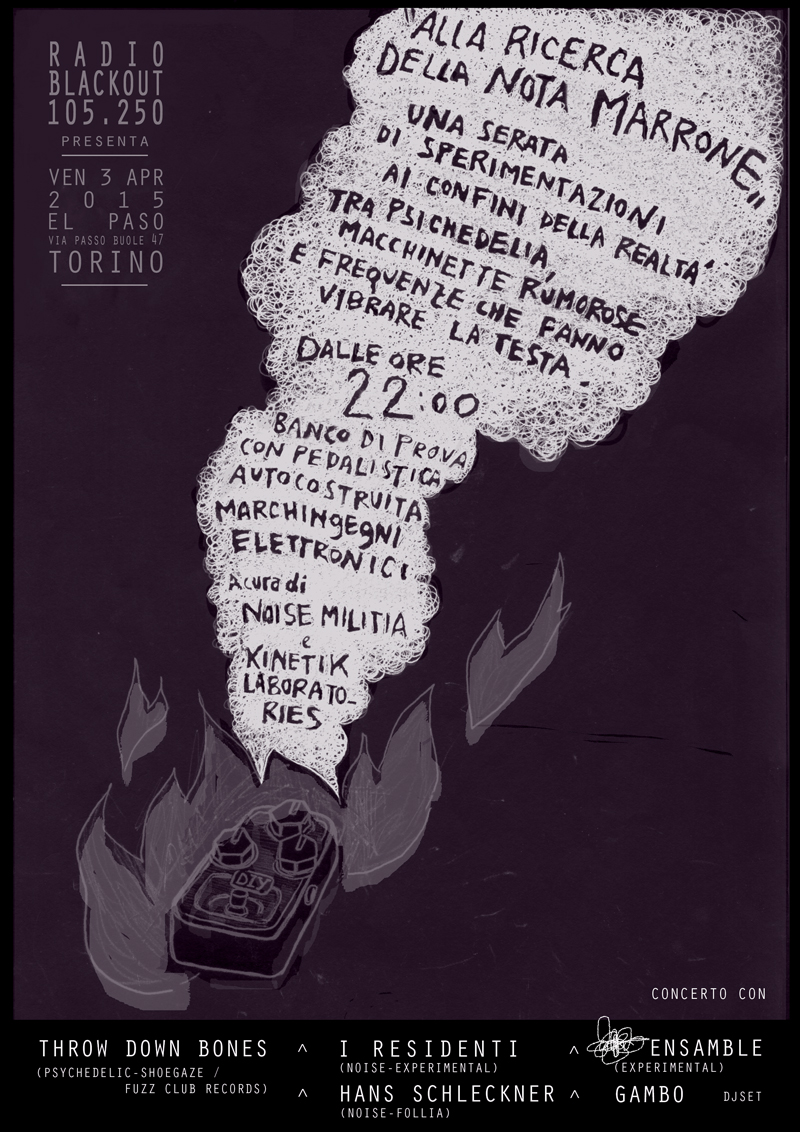 RADIO
BLACKOUT
105.250
PRESENTA
VEN 3 APR
2015
EL PASO
VIA PASSO BUOLE 47
TORINO
"ALLA RICERCA
DELLA NOTA MARRONE"
UNA SERATA
DI SPERIMENTAZIONI
AI CONFINI DELLA REALTA'
TRA PSICHEDELIA,
MACCHINETTE RUMOROSE
E FREQUENZE CHE FANNO
VIBRARE LA TESTA.
DALLE ORE
22:00
BANCO DI PROVA
CON PEDALISTICA
AUTOCOSTRUITA
MARCHINgEgNI
ELETTRONICI
A cura di
NOISE MILITIA
e
KINETIK
LABORATO-
RIES
DIY
CONCERTO CON
THROW DOWN BONES ^ I RESIDENTI ^ ENSAMBLE
(PSYCHEDELIC-SHOEGAZE / (NOISE-EXPERIMENTAL) (EXPERIMENTAL)
FUZZ CLUB RECORDS) ^ HANS SCHLECKNER ^ GAMBO DJSET
(NOISE-FOLLIA)